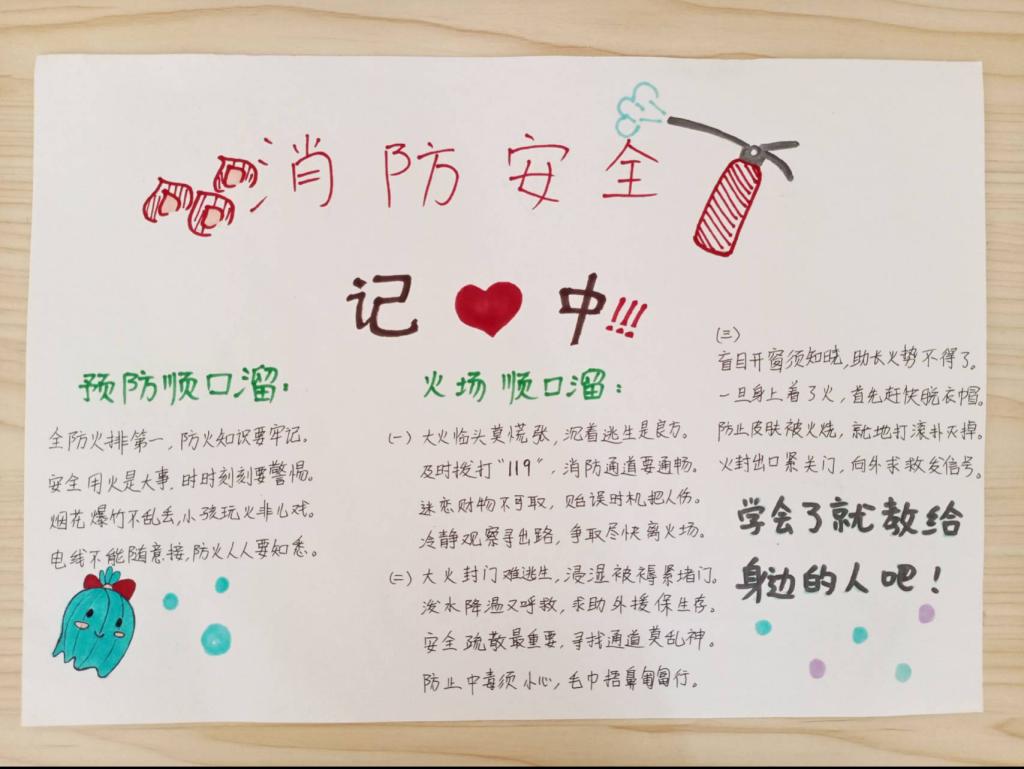 消防安全
记❤中!!!
预防顺口溜:
全防火排第一,防火知识要牢记。
安全用火是大事,时时刻刻要警惕。
烟花爆竹不乱丢,小孩玩火非儿戏。
电线不能随意接,防火人人要知悉。
火场顺口溜:
(一)大火临头莫慌张,沉着逃生是良方。
及时拨打“119”,消防通道要通畅。
迷恋财物不可取,贻误时机把人伤。
冷静观察寻出路,争取尽快离火场。
(二)大火封门难逃生,浸湿被褥紧堵门。
泼水降温又呼救,求助外援保生存。
安全疏散最重要,寻找通道莫乱神。
防止中毒须小心,毛巾捂鼻匍匐行。
(三)
盲目开窗须知晓,助长火势不得了。
一旦身上着了火,首先赶快脱衣帽。
防止皮肤被火烧,就地打滚扑灭掉。
火封出口紧关门,向外求救发信号。
学会了就教给
身边的人吧!